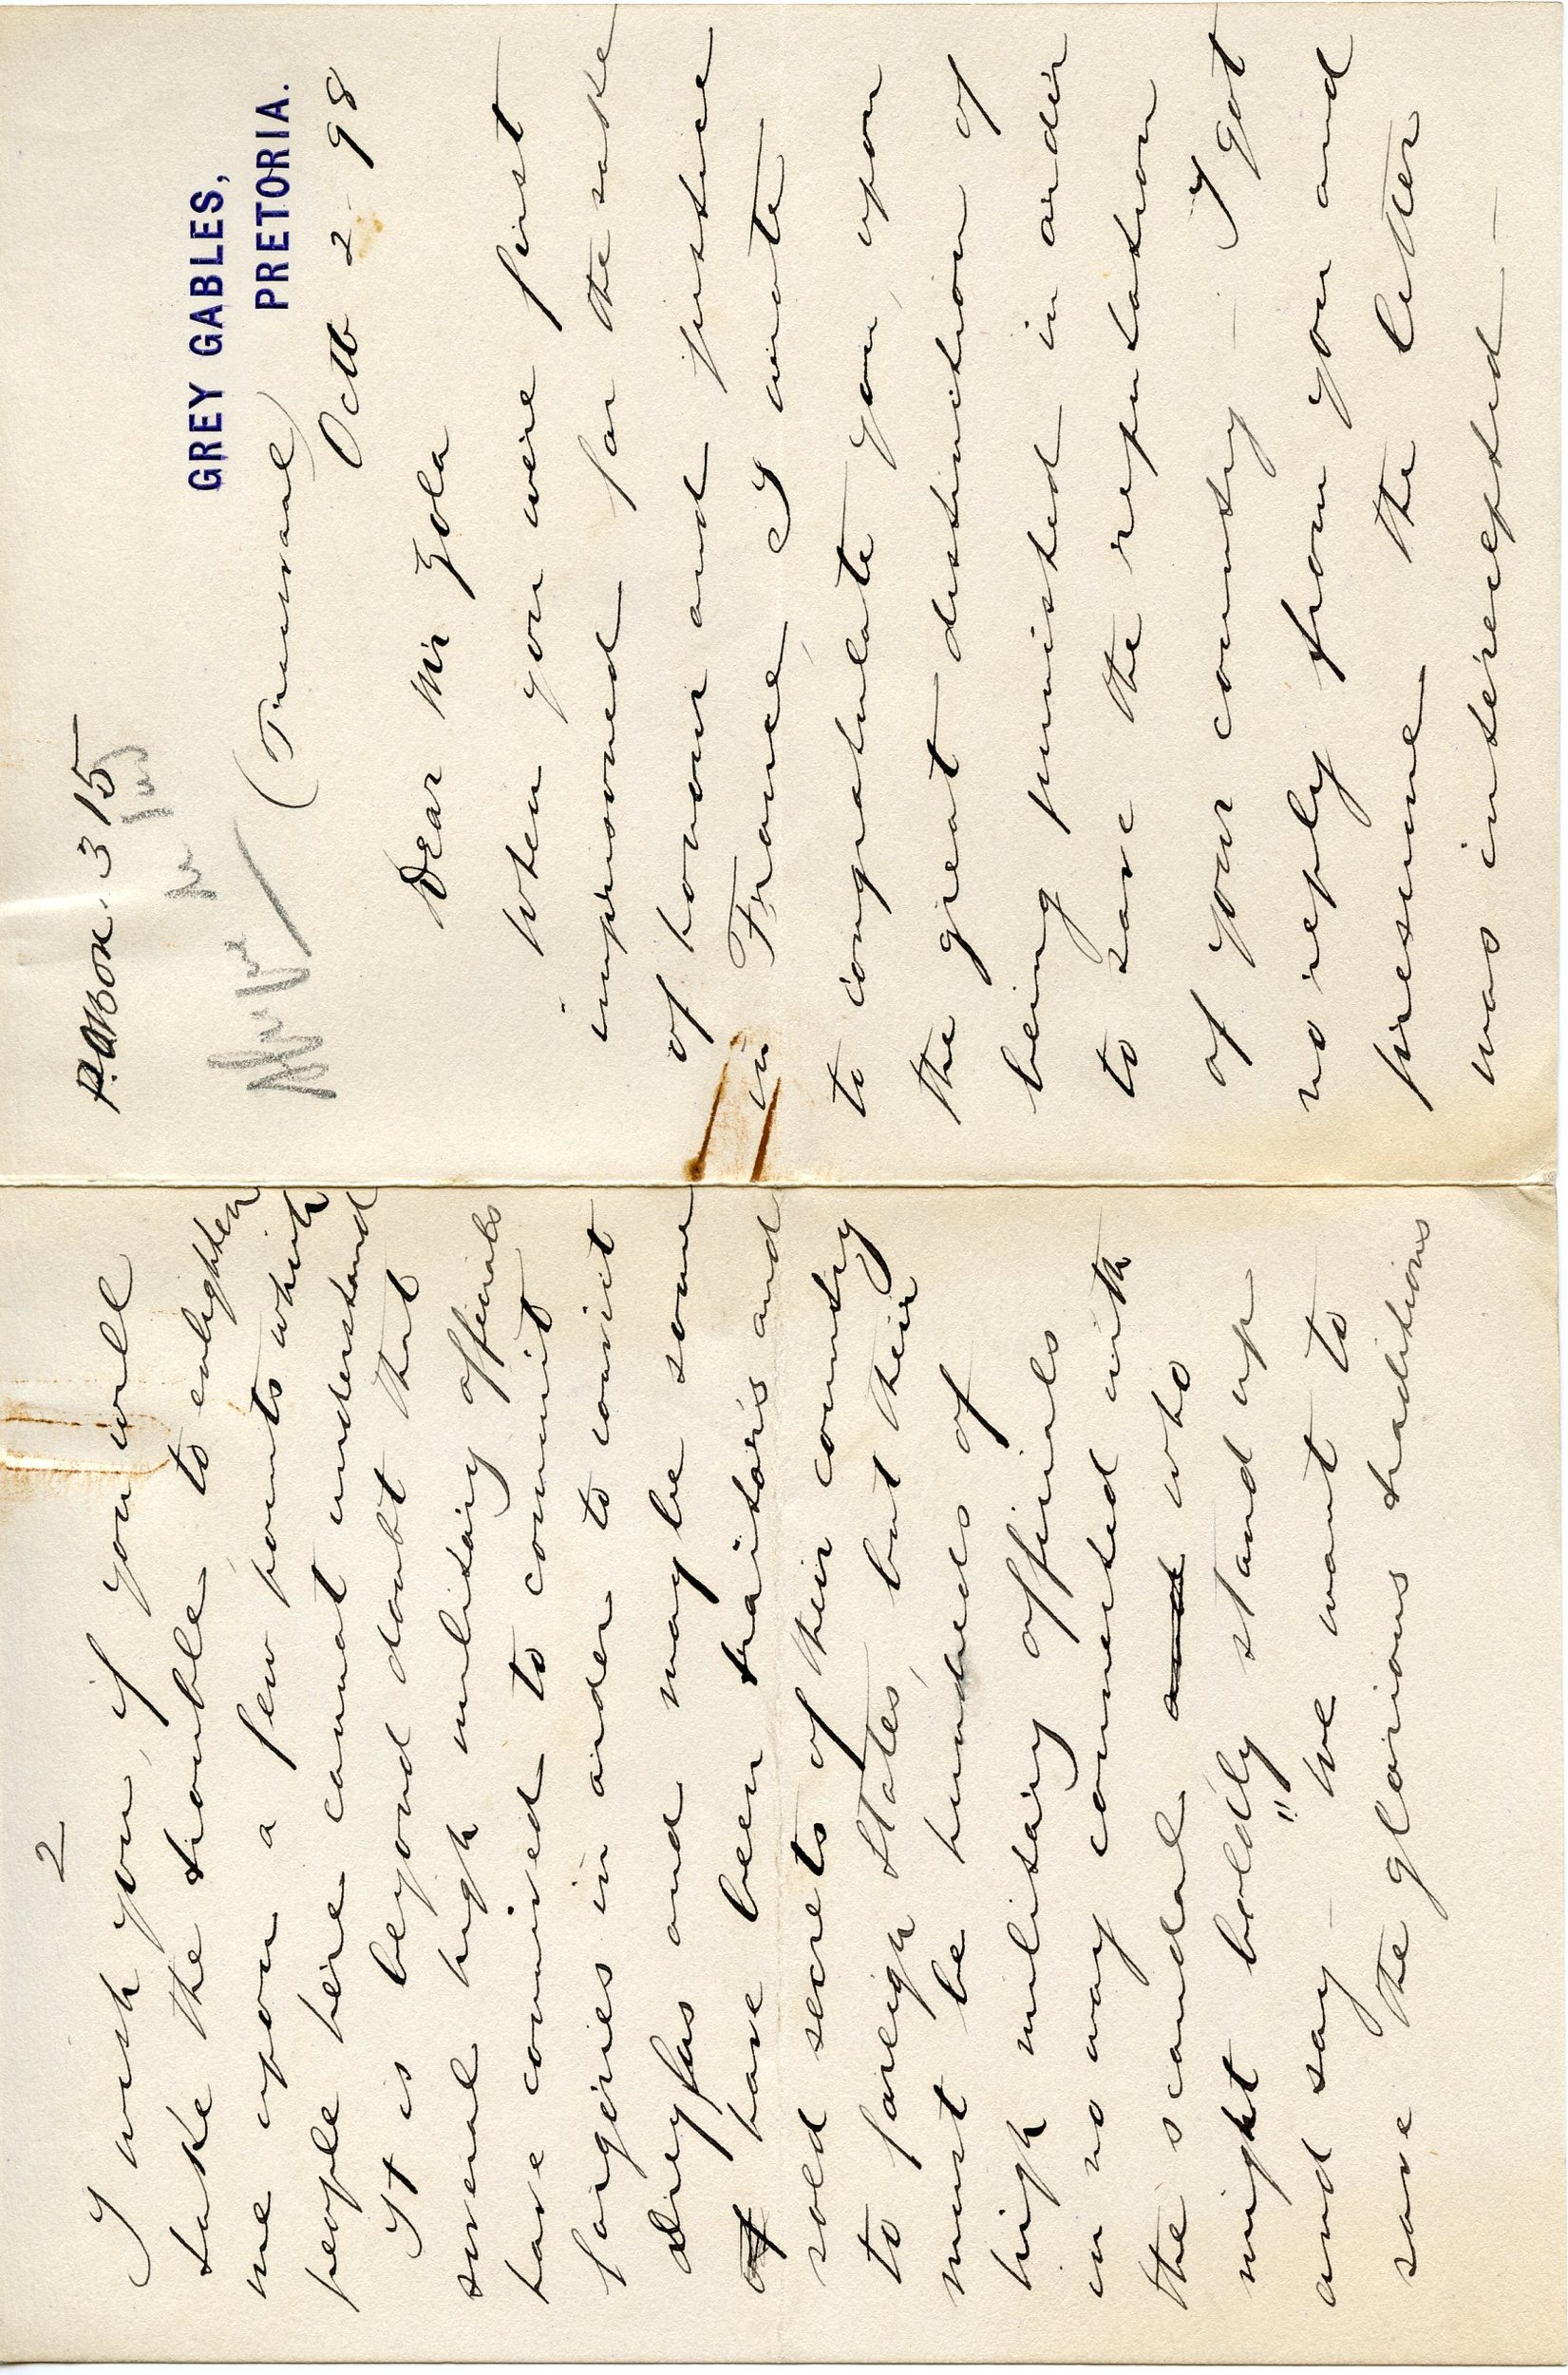 P.O. Box 315
GREY GABLES,
PRETORIA.
(Transvaal)
Octb 2 98
Dear Mr Zola
When you were first
imprisoned for the sake
of honour and justice
in France, I wrote
to congratulate you, upon
the great distinction of
being punished in order
to save the reputation
of your country – I got
no reply from you and
presume the letter
was intercepted –
2
I wish you, if you will
take the trouble to enlighten
me upon a few points which
people here cannot understand
It is beyond doubt that
several high military officials
have conived to commit
forgeries in order to convict
Dreyfus and maybe some
have been traitors and
sold secrets of their country
to foreign States, but their
must be hundreds of
high military officials
in no way connected with
the scandal and who
might boldly stand up
and say – "We want to
save the glorious traditions